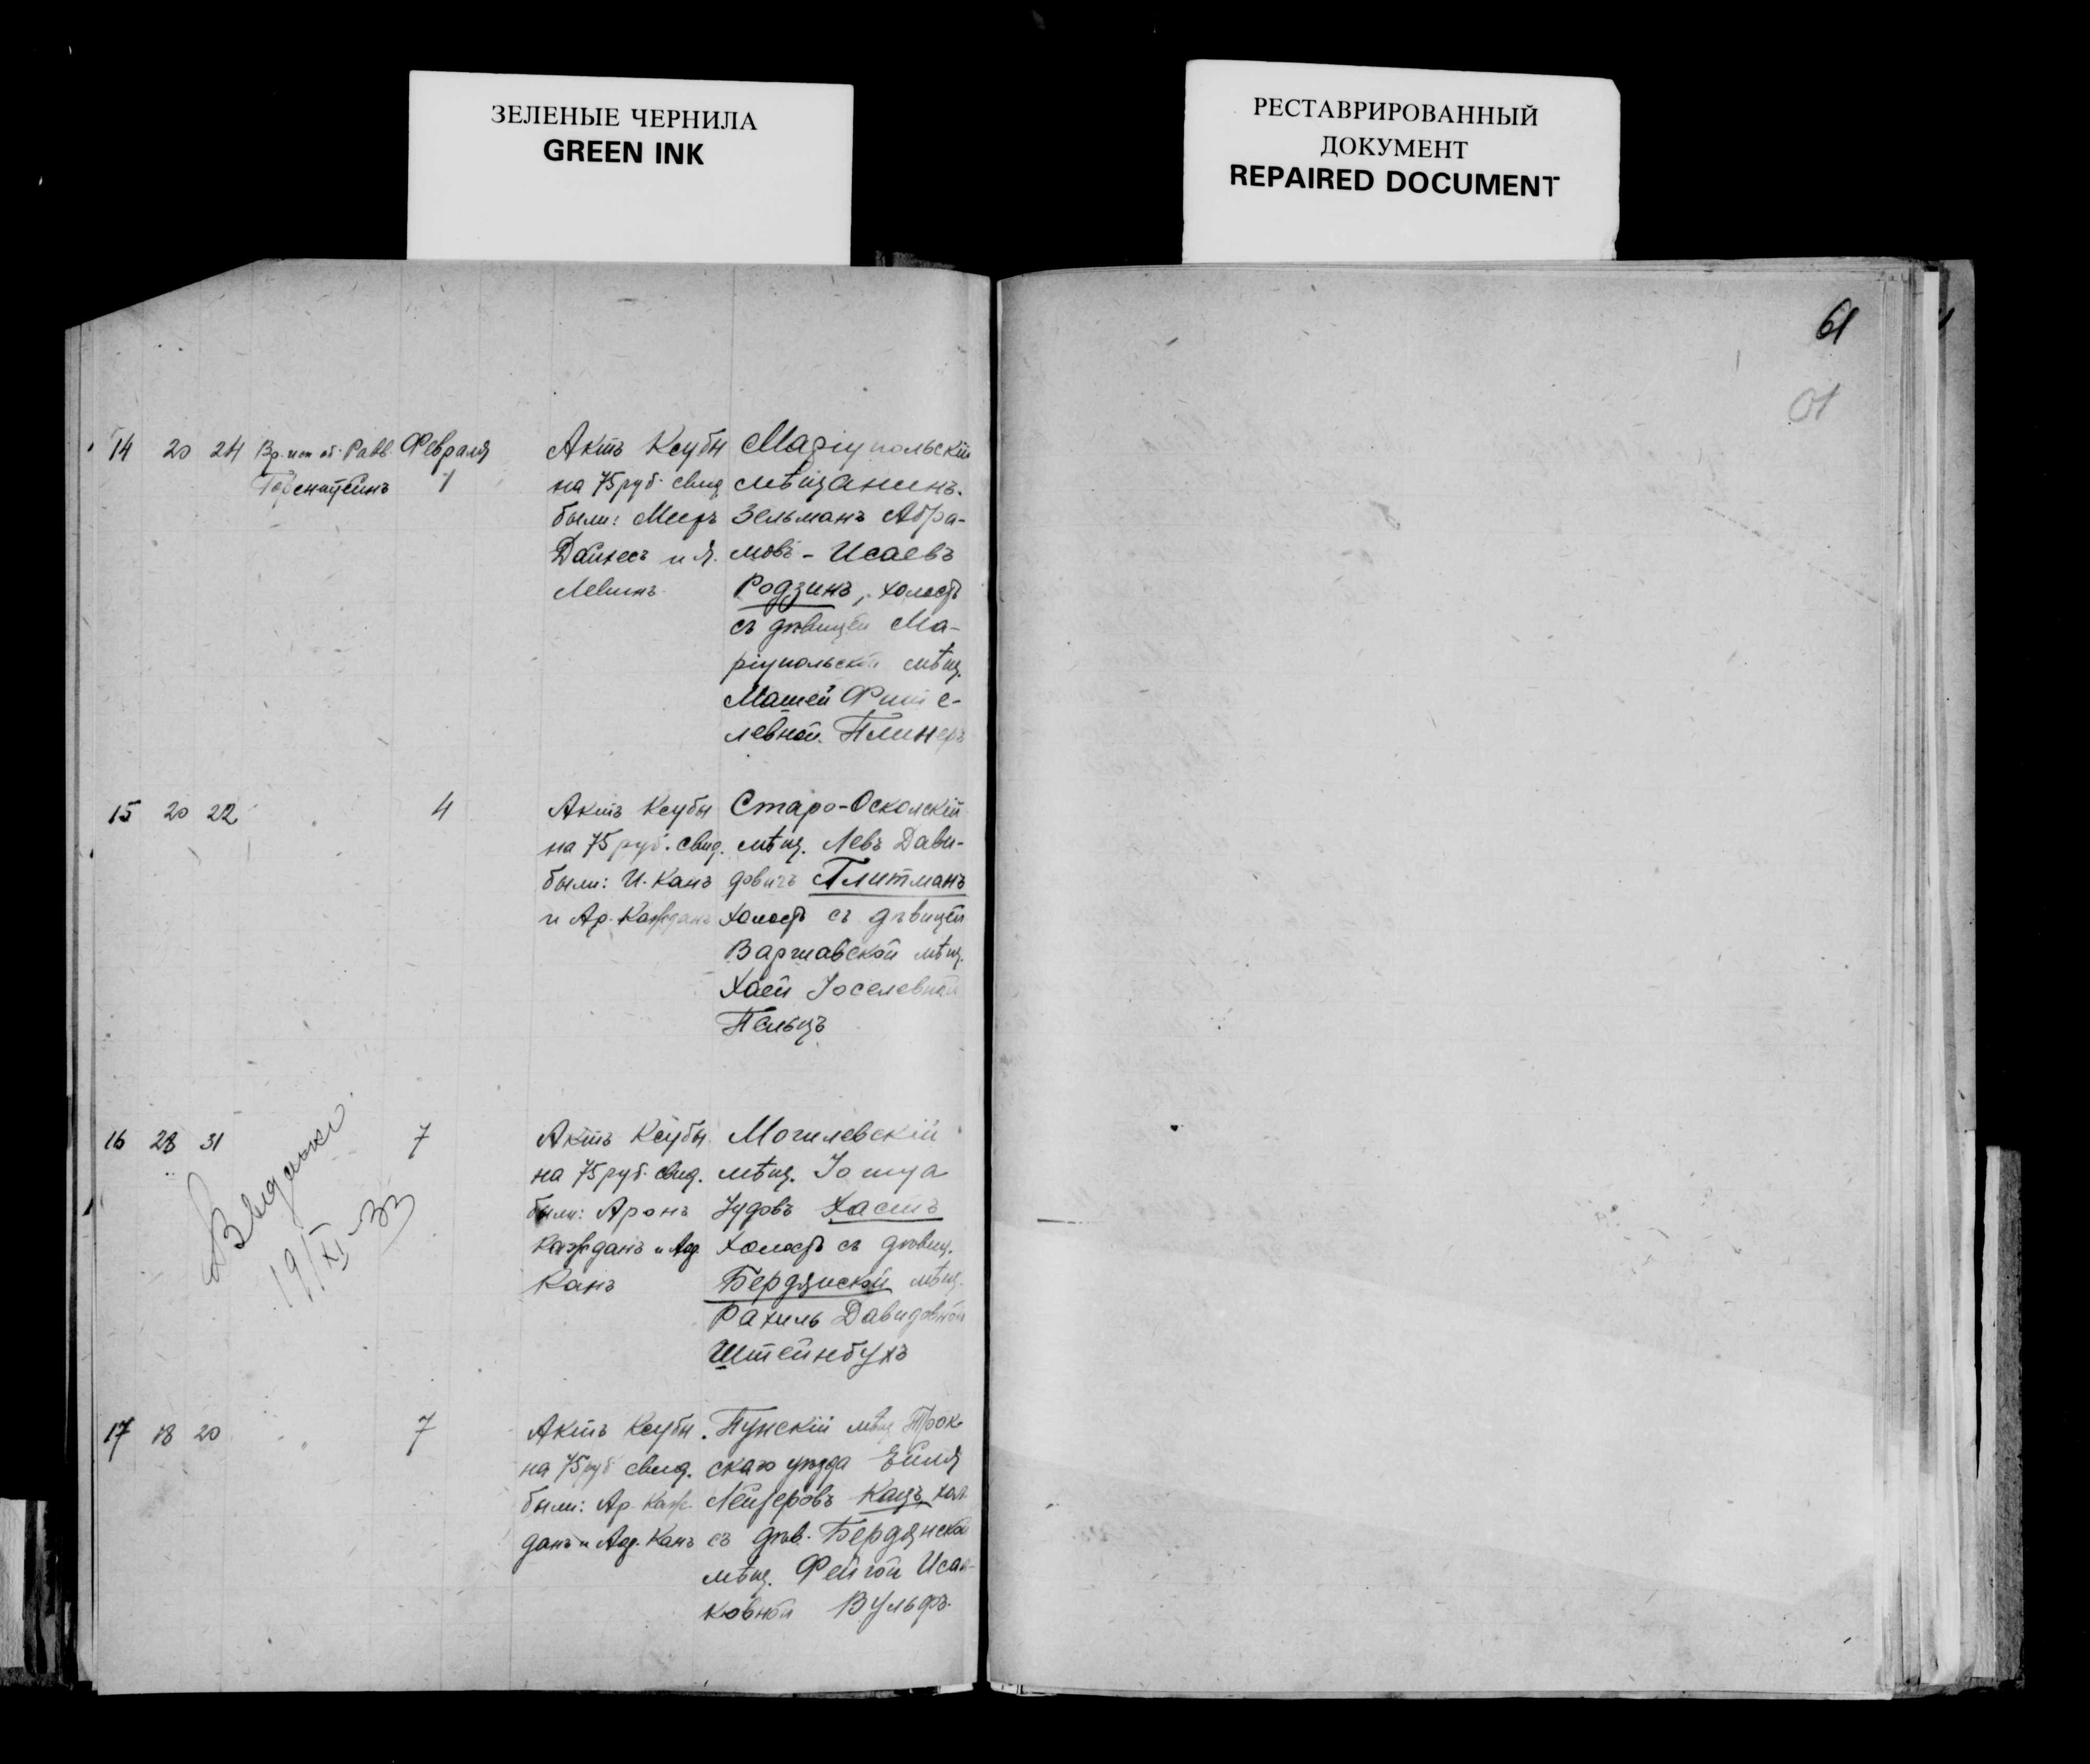 ЗЕЛЕНЫЕ ЧЕРНИЛА
GREEN INK
РЕСТАВРИРОВАННЫЙ
ДОКУМЕНТ
REPAIRED DOCUMENT
61
14 20 24 Равв. Февраля
1
Актъ Ксубы
на 75 руб. свид.
были: Мееръ
и Я.
Левинъ
Маріупольскій
мѣщанинъ.
Зельманъ Абра-
мовъ-Исаевъ
Родзинъ, холостъ
съ дѣвицей Ма-
ріупольской мѣщ.
Машей
левной Плинеръ
15 20 22 4
Актъ Ксубы
на 75 руб. свид.
были: И. Канъ
и Ар. Кажданъ
Старо-Осколскій
мѣщ. Левъ Дави-
довичъ Плитманъ
холостъ съ дѣвицей
Варшавской мѣщ.
Хаей Іоселевной
Пельцъ
16 28 31 7
19/XI-33
Актъ Ксубы
на 75 руб. свид.
были: Аронъ
Кажданъ и
Канъ
Могилевскій
мѣщ. Іошуа
Іудовъ Хастъ
холостъ съ дѣвиц.
Бердянской мѣщ.
Рахиль Давидовной
Штейнбухъ
17 18 20 7
Актъ Ксубы
на 75 руб. свид.
были: Ар. Каж-
данъ и Канъ
Пунскій мѣщ. Трок-
скаго уѣзда
Лейзеровъ Кацъ хол.
съ дѣв. Бердянской
мѣщ. Фейгой Исаа-
ковной Вульфъ